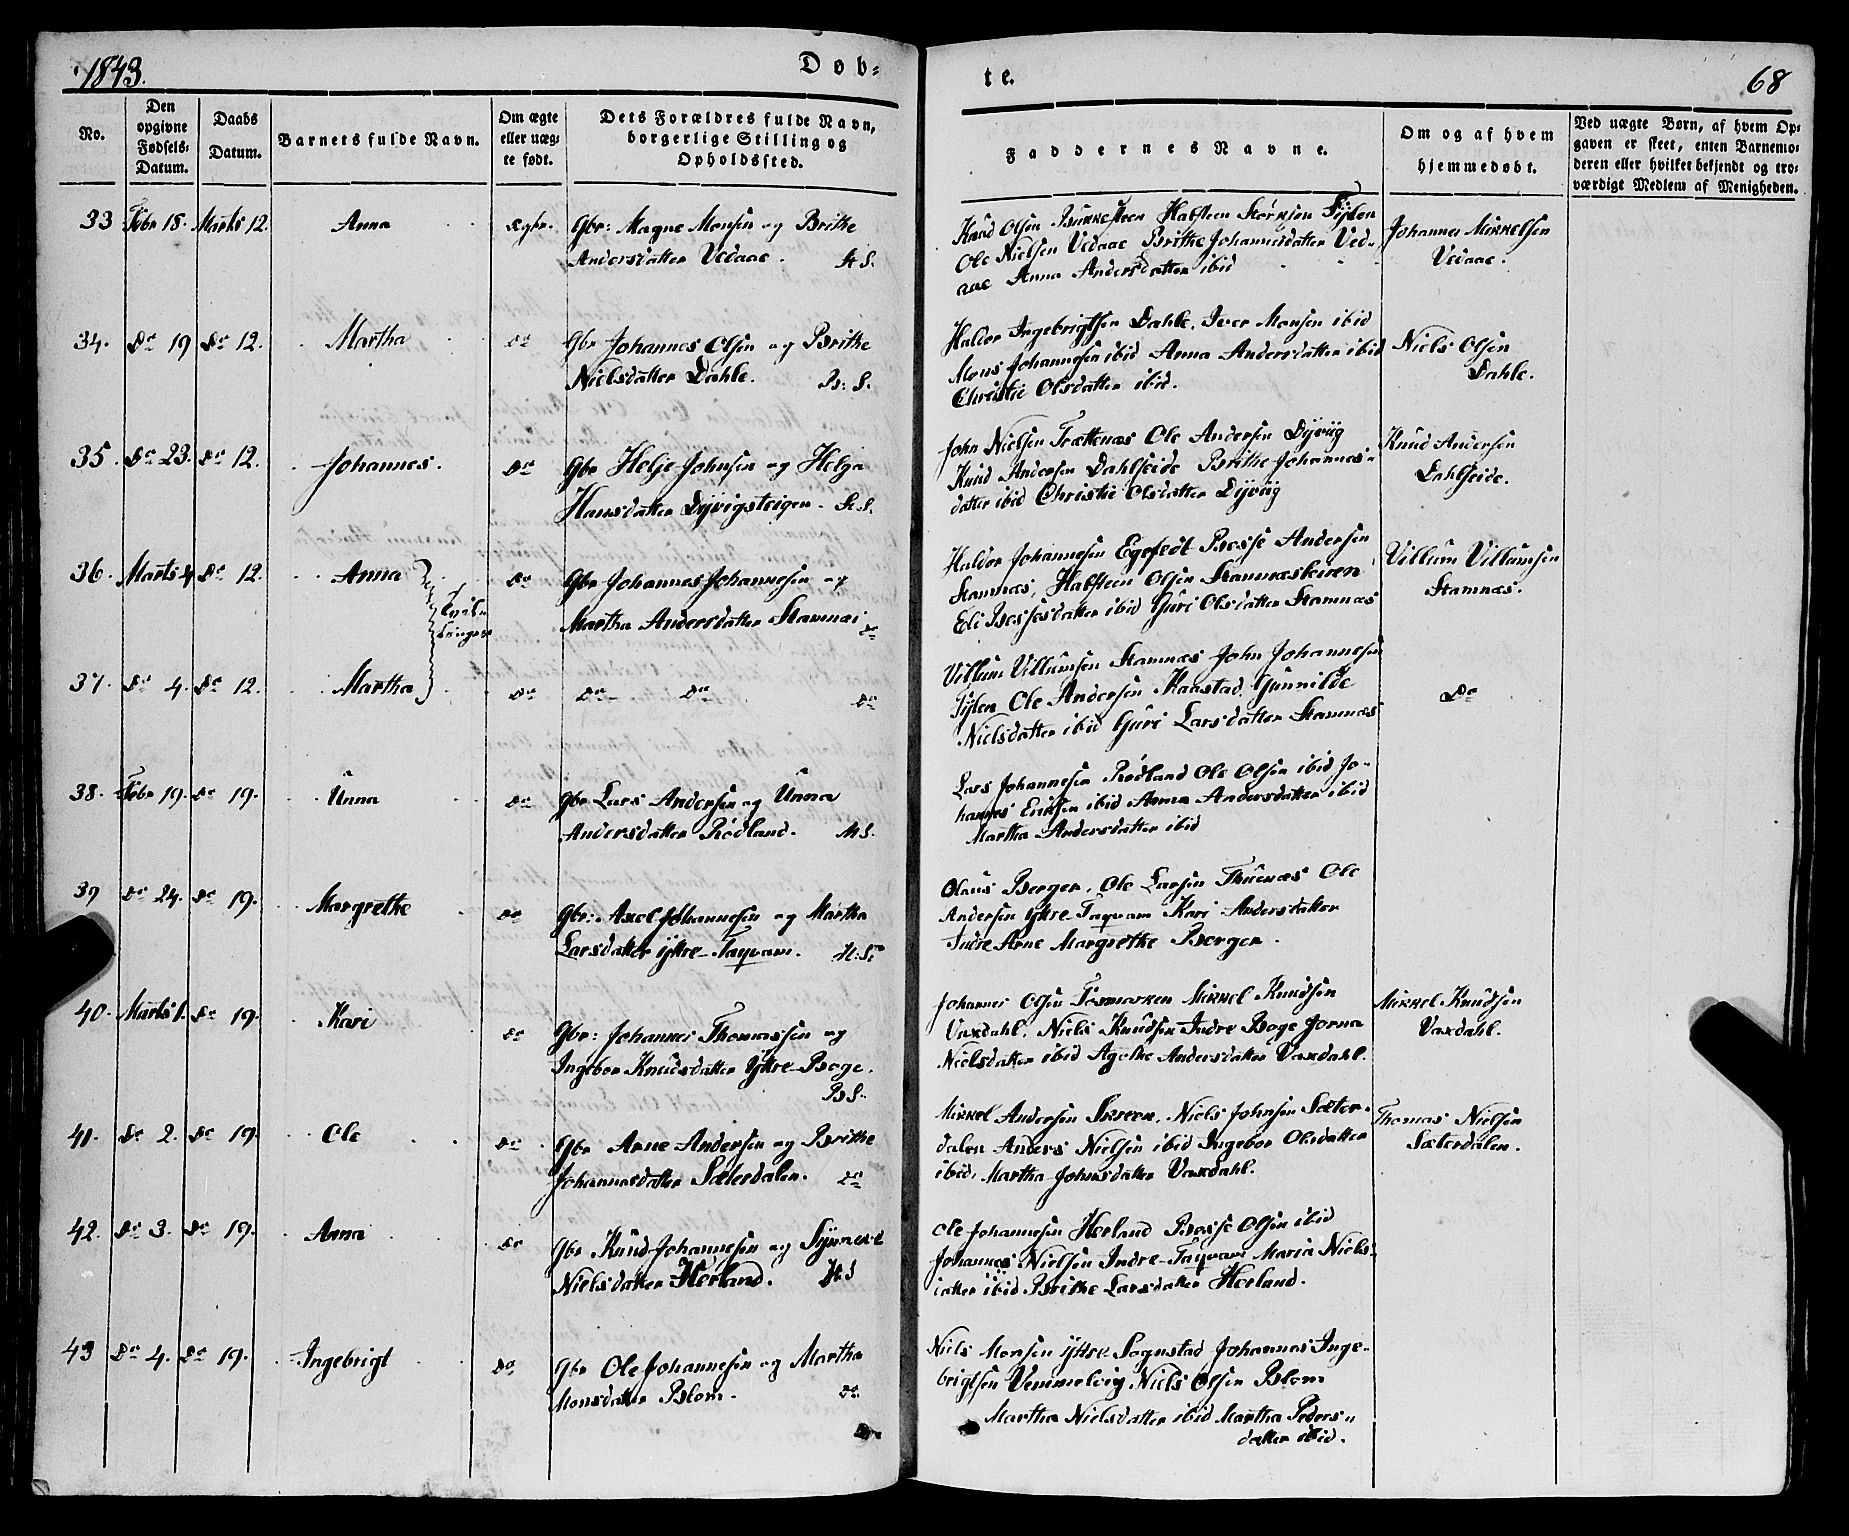 1843.
Døb-
te.
68
No.
Den opgivne Fødsels-Datum.
Daabs Datum.
Barnets fulde Navn.
Om ægte eller uæg-te født.
Dets Forældres fulde Navn, borgerlige Stilling og Opholdssted.
Faddernes Navne.
Om og af hvem hjemmedøbt.
Ved uægte Børn, af hvem Op-
gaven er skeet, enten Barnemo-
deren eller hvilket bekjendt og tro-
værdigt Medlem af Menigheden.
33 Febr 18. Marts 12. Anna
Gbr: Magne Monsen og Brithe
Andersdatter Vedaae. St S.
Knud Olsen Halsteen
Ole Nielsen Vedaae Brithe Johannesdatter Ved-
aae Anna Andersdatter ibid
Johannes Mikkelsen
Vedaae.
34. Do 19 Do 12. Martha Do
Gbr Johannes Olsen og Brithe
Nielsdatter Dahle. B: S.
Haldor Ingebrigtsen Dahle, Iver Monsen ibid
Mons Johannesen ibid Anna Andersdatter ibid
Christie Olsdatter ibid.
Niels Olsen
Dahle.
35. Do 23. Do 12. Johannes. Do
Gbr Helje Johnsen og Helga
Hansdatter Dyvigsteigen. St S.
John Nielsen Trættenæs Ole Andersen Dyviig
Knud Andersen Dahlseide Brithe Johannes-
datter ibid Christie Olsdatter Dyviig
Knud Andersen
Dahlseide.
36. Marts 4 Do 12. Anna Do
Gbr Johannes Johannesen og
Martha Andersdatter Stamnæs Do
Haldor Johannesen Brosse Andersen
Stamnæs, Halsteen Olsen
ibid Guri Olsdatter Stamnæs
Villum Villumsen
Stamnæs.
37. Do 4. Do 12. Martha Do
Do Do Do
Villum Villumsen Stamnæs John Johannesen
Ole Andersen Kaastad, Gunnilde
Nielsdatter ibid Guri Larsdatter Stamnæs
Do
38. Febr 19. Do 19. Unna Do
Gbr Lars Andersen og Unna
Andersdatter Rødland. M S.
Lars Johannesen Rødland Ole Olsen ibid Jo-
hannes Eriksen ibid Anna Andersdatter ibid
Martha Andersdatter ibid
39 Do 24. Do 19. Margrethe Do
Gbr: Axel Johannesen og Martha
Larsdatter Yttre-Taqvam. H: S:
Olaus Berger, Ole Larsen Ole
Andersen Yttre Taqvam Kari Andersdatter
Indre Arne Margrethe Berger.
40. Marts 1. Do 19. Kari Do
Gbr: Johannes Thomassen og
Ingebor Knudsdatter Yttre-Boge.
B S.
Johannes Olsen Mikkel Knudsen
Vaxdahl, Niels Knudsen Indre Boge
Nielsdatter ibid Agathe Andersdatter Vaxdahl.
Mikkel Knudsen
Vaxdahl.
41. Do 2. Do 19. Ole Do
Gbr Arne Andersen og Brithe
Johannesdatter Sæterdalen. Do
Mikkel Andersen Skreen, Niels Johnsen Sæter-
dalen Anders Nielsen ibid Ingebor Olsdatter
ibid, Martha Johnsdatter Vaxdahl.
Thomas Nielsen
Sæterdalen.
42. Do 3. Do 19. Anna Do
Gbr Knud Johannesen og Synneve
Nielsdatter Herland. H S
Ole Johannesen Herland Brosse Olsen ibid
Johannes Nielsen Indre-Taqvam Maria Niels-
datter ibid Brithe Larsdatter Herland.
43 Do 4. Do 19. Ingebrigt Do
Gbr Ole Johannesen og Martha
Monsdatter Blom. Do
Niels Monsen Yttre Sognstad Johannes Inge-
brigtsen Vemmelvig Niels Olsen Blom
Martha Nielsdatter ibid Martha Peders-
datter ibid.